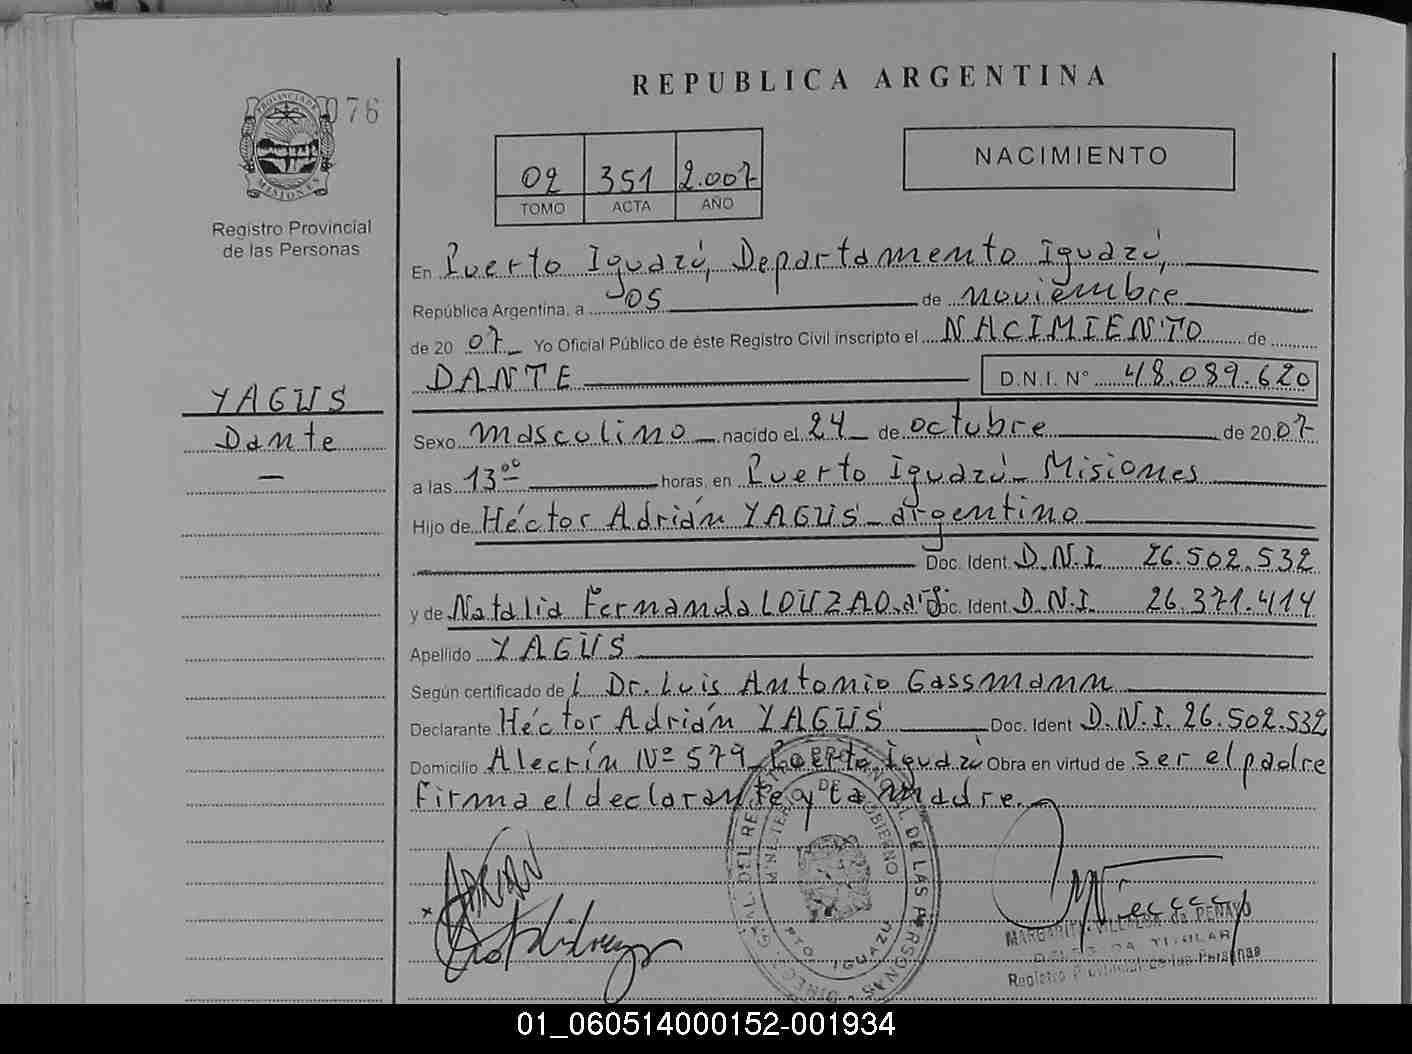 REPUBLICA ARGENTINA
PROVINCIA DE
MISIONES
076
Registro Provincial
de las Personas
02 351 2.007
TOMO ACTA AÑO
NACIMIENTO
En Puerto Iguazú, Departamento Iguazú,
República Argentina, a 05 de noviembre
de 20 07 Yo Oficial Público de éste Registro Civil inscripto el NACIMIENTO de
DANTE D.N.I. N° 48.089.620
YAGÜS
Dante
Sexo masculino nacido el 24 de octubre de 20 07
a las 13 ºº horas, en Puerto Iguazú - Misiones
Hijo de Héctor Adrián YAGÜS - argentino
Doc. Ident. D.N.I. 26.502.532
y de Natalia Fernanda LOUZAO, arg Doc. Ident. D.N.I. 26.371.414
Apellido YAGÜS
Según certificado de l Dr. Luis Antonio Gassmann
Declarante Héctor Adrián YAGÜS Doc. Ident D.N.I. 26.502.532
Domicilio Alecrín Nº 579 - Puerto Iguazú Obra en virtud de ser el padre
Firma el declarante y la madre.
DE LAS PERSONAS
GOBIERNO
DPTO. IGUAZU
MARGARITA VILLALBA de PENAYO
DELEGADA TITULAR
Registro Provincial de las Personas
01_060514000152-001934